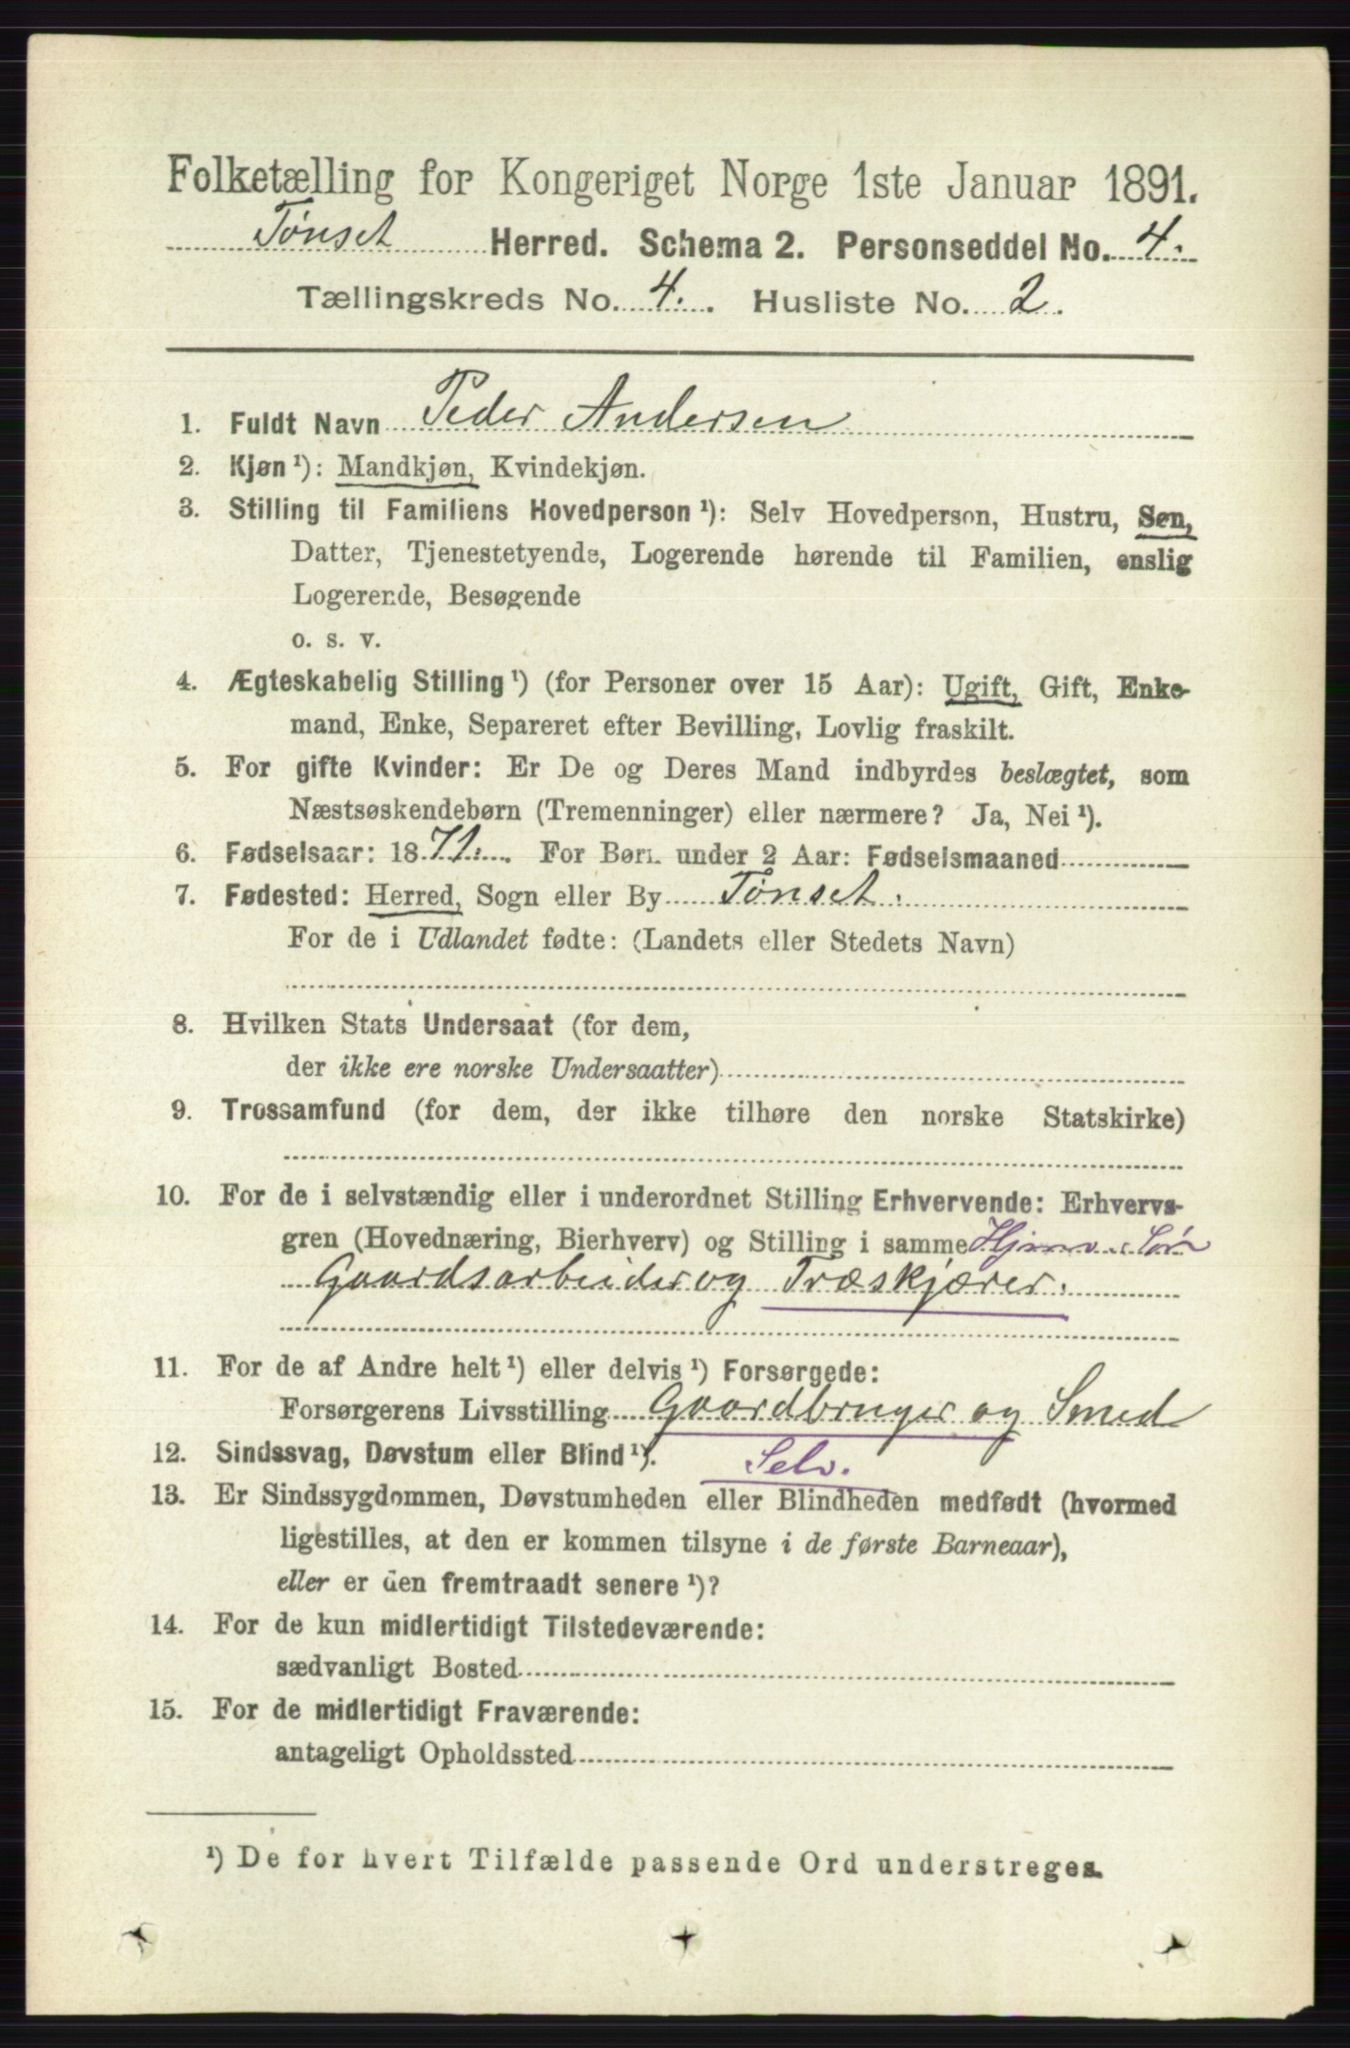 Folketælling for Kongeriget Norge 1ste Januar 1891.
Tønset Herred. Schema 2. Personseddel No. 4.
Tællingskreds No. 4. Husliste No. 2.
1. Fuldt Navn Peder Andersen
2. Kjøn ¹): Mandkjøn, Kvindekjøn.
3. Stilling til Familiens Hovedperson ¹): Selv Hovedperson, Hustru, Søn,
Datter, Tjenestetyende, Logerende hørende til Familien, enslig
Logerende, Besøgende
o. s. v.
4. Ægteskabelig Stilling ¹) (for Personer over 15 Aar): Ugift, Gift, Enke-
mand, Enke, Separeret efter Bevilling, Lovlig fraskilt.
5. For gifte Kvinder: Er De og Deres Mand indbyrdes beslægtet, som
Næstsøskendebørn (Tremenninger) eller nærmere? Ja, Nei ¹).
6. Fødselsaar: 1871. For Børn under 2 Aar: Fødselsmaaned
7. Fødested: Herred, Sogn eller By Tønset.
For de i Udlandet fødte: (Landets eller Stedets Navn)
8. Hvilken Stats Undersaat (for dem,
der ikke ere norske Undersaatter)
9. Trossamfund (for dem, der ikke tilhøre den norske Statskirke)
10. For de i selvstændig eller i underordnet Stilling Erhvervende: Erhvervs-
gren (Hovednæring, Bierhverv) og Stilling i samme Hjemv. Søn
Gaardsarbeider og Træskjærer.
11. For de af Andre helt ¹) eller delvis ¹) Forsørgede:
Forsørgerens Livsstilling Gaardbruger og Smed
12. Sindssvag, Døvstum eller Blind ¹). Selv.
13. Er Sindssygdommen, Døvstumheden eller Blindheden medfødt (hvormed
ligestilles, at den er kommen tilsyne i de første Barneaar),
eller er den fremtraadt senere ¹)?
14. For de kun midlertidigt Tilstedeværende:
sædvanligt Bosted
15. For de midlertidigt Fraværende:
antageligt Opholdssted
¹) De for hvert Tilfælde passende Ord understreges.